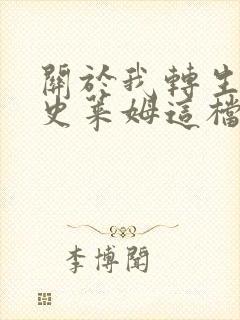 關於我轉生
史萊姆這檔
李博聞